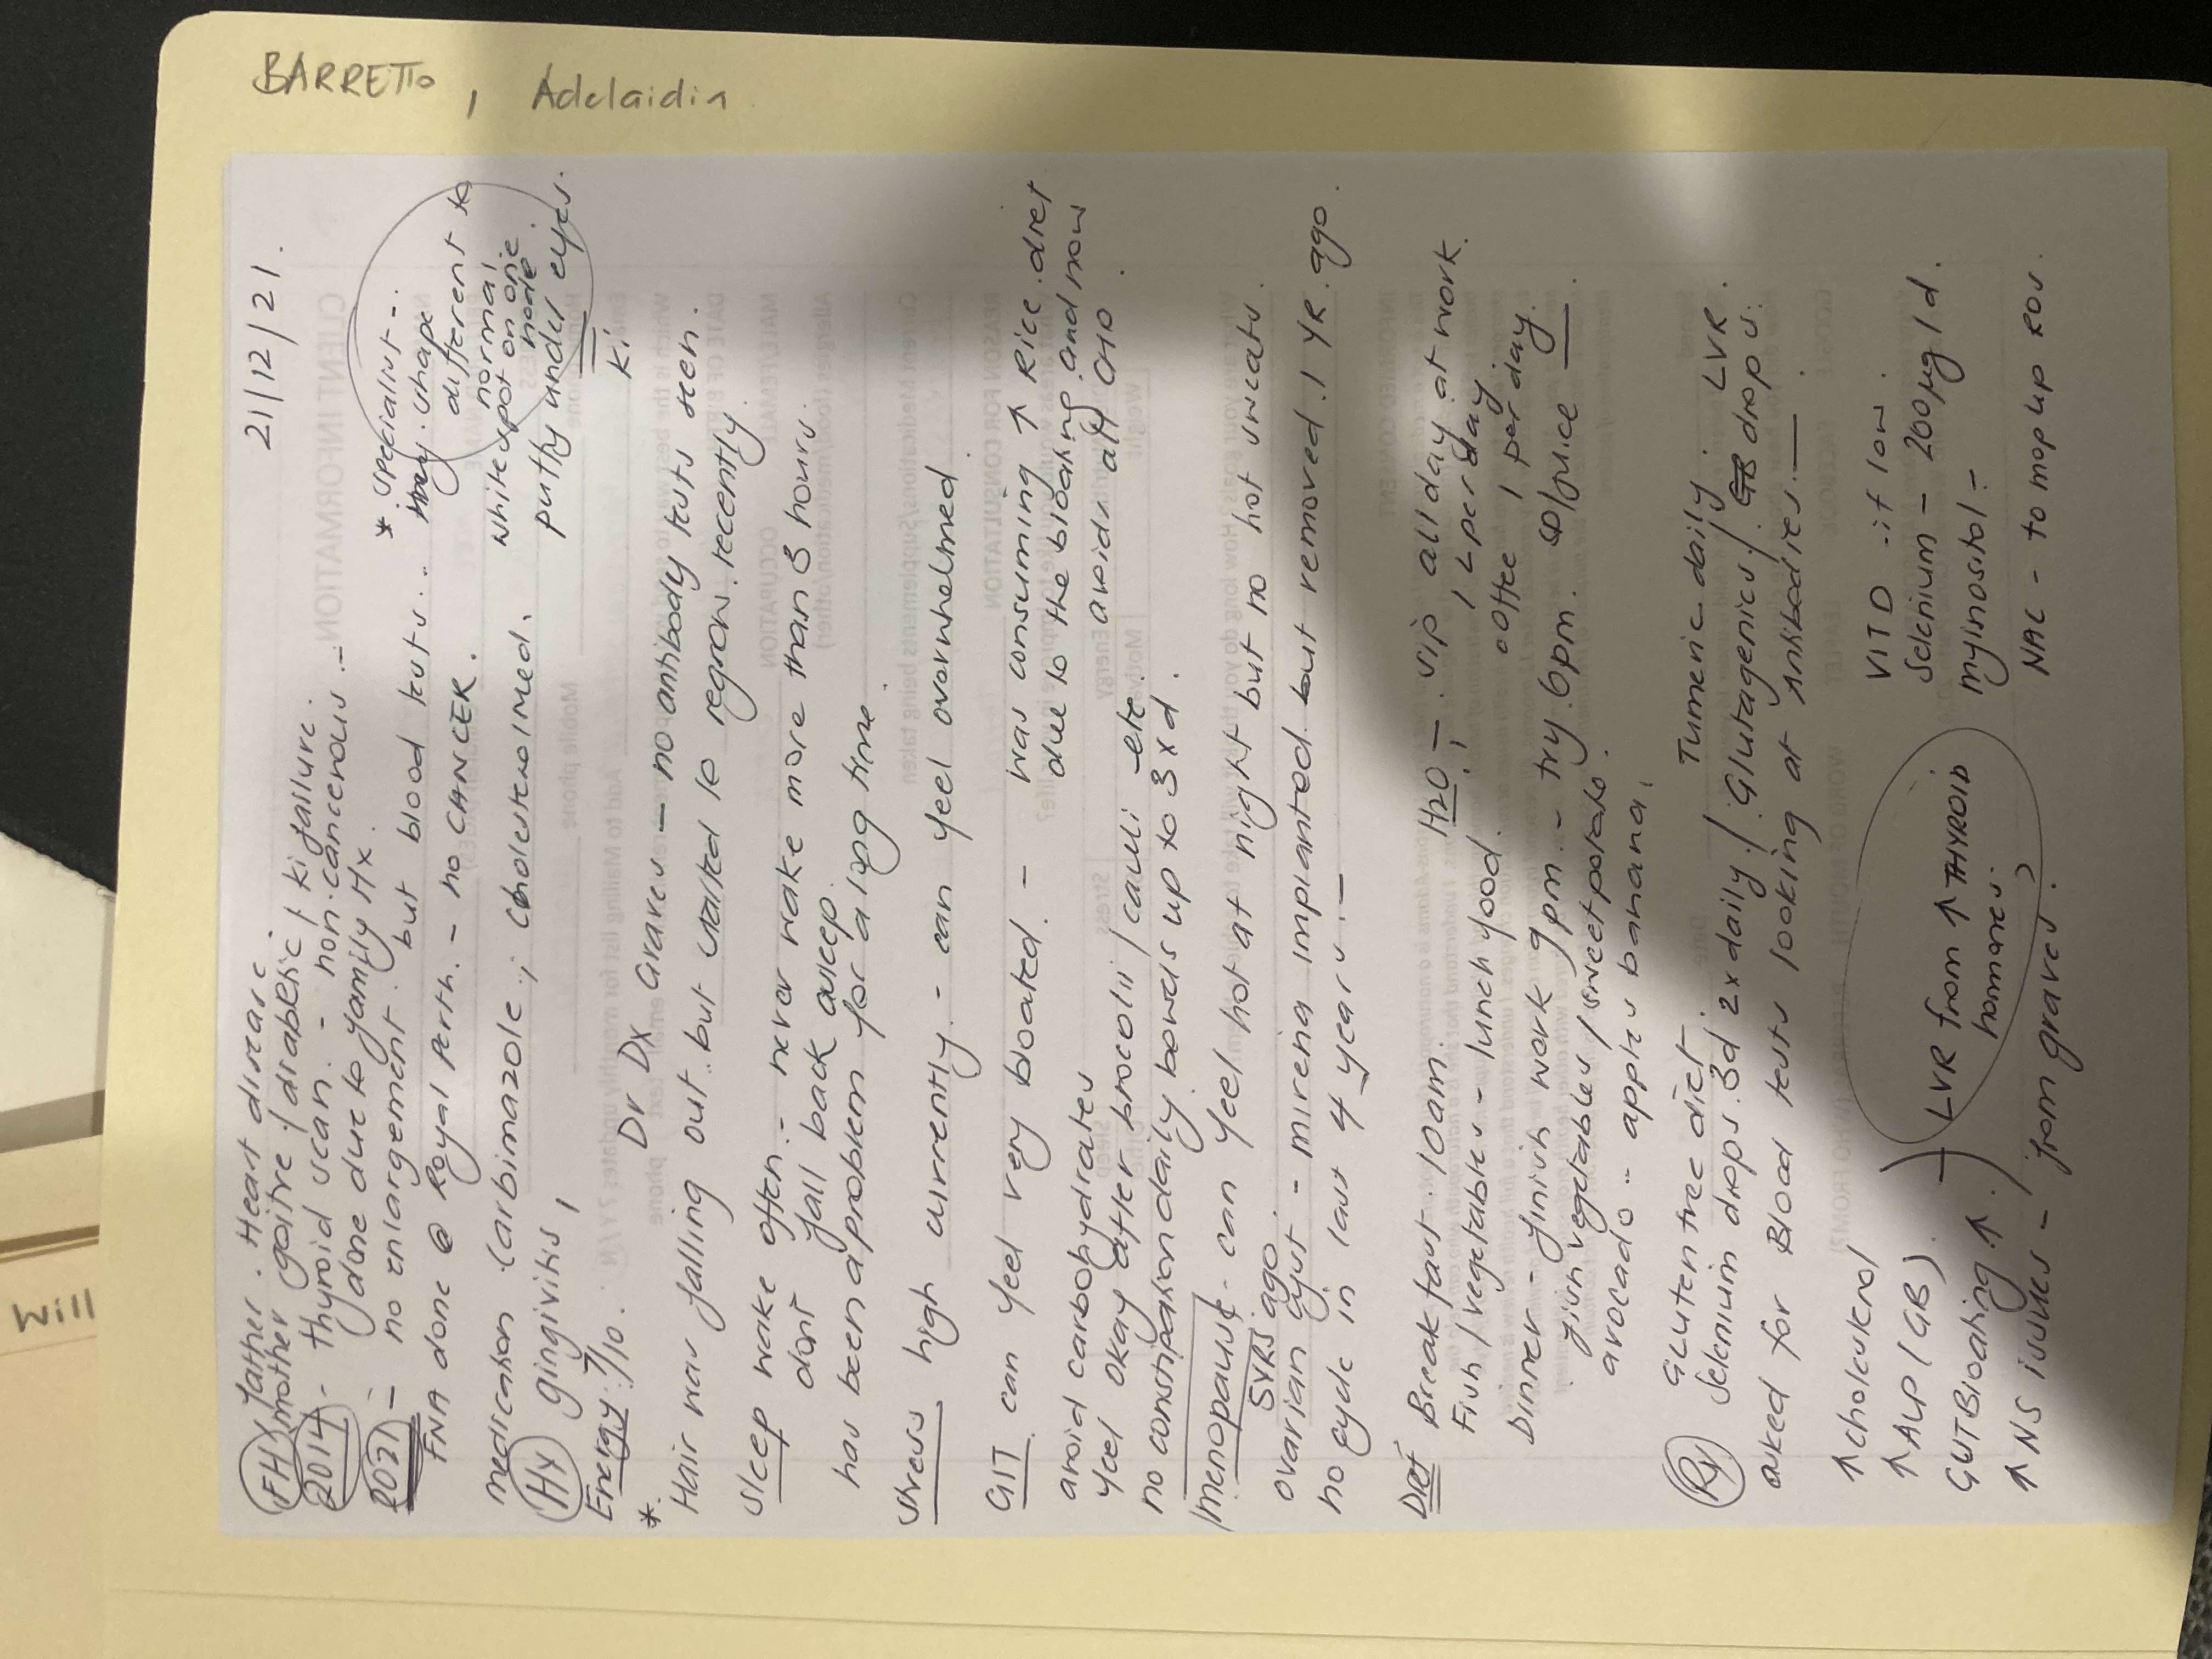 BARRETTO, Adelaidin
Will
21/12/21.
FH father. Heart disease
mother goitre / diabetic / ki failure.
2014 - thyroid scan. - non-cancerous -
done due to family Hx.
2021 - no enlargement. but blood tests..
FNA done @ Royal Perth. - no CANCER.
* Specialist -.
shape
different to
normal.
white spot on one
node
puffy under eyes.
Ki
medication. Carbimazole; cholesterol med.
Hx gingivitis,
Energy. 7/10. Dr Dx Graves - no antibody tests seen.
* Hair was falling out but started to regrow recently.
Sleep wake often - never wake more than 3 hours.
dont fall back asleep.
has been a problem for a long time.
Stress high currently. - can feel overwhelmed.
GIT can feel very bloated. - was consuming ↑ Rice diet
due to the bloating and now
avoids all CHO.
avoid carbohydrates
feel okay after broccolii / cauli etc.
no constipation daily bowels up to 3xd.
menopause - can feel hot at night but no hot sweats.
5YRS ago.
ovarian cyst - mirena implanted but removed 1 YR ago.
no cycle in last 4 years -
Diet Breakfast. 10am. H2O - sip all day at work.
1 L per day.
Fish / vegetables - lunch food. coffee 1 per day.
Dinner - finish work 9pm - try 6pm. /juice
fish vegetables / sweet potato.
avocado - apples banana.
Rx Gluten free diet. Tumeric daily.
Selenium drops. 3d 2x daily / Glutagenics / LVR drops.
asked for Blood tests looking at Antibodies.
↑ cholesterol
↑ ALP (GB). LVR from ↑ THYROID
homones.
GUT Bloating ↑.
↑ NS issues - from graves.
VIT D - if low.
Selenium - 200µg/d.
myinositol -
NAC - to mop up ROS.